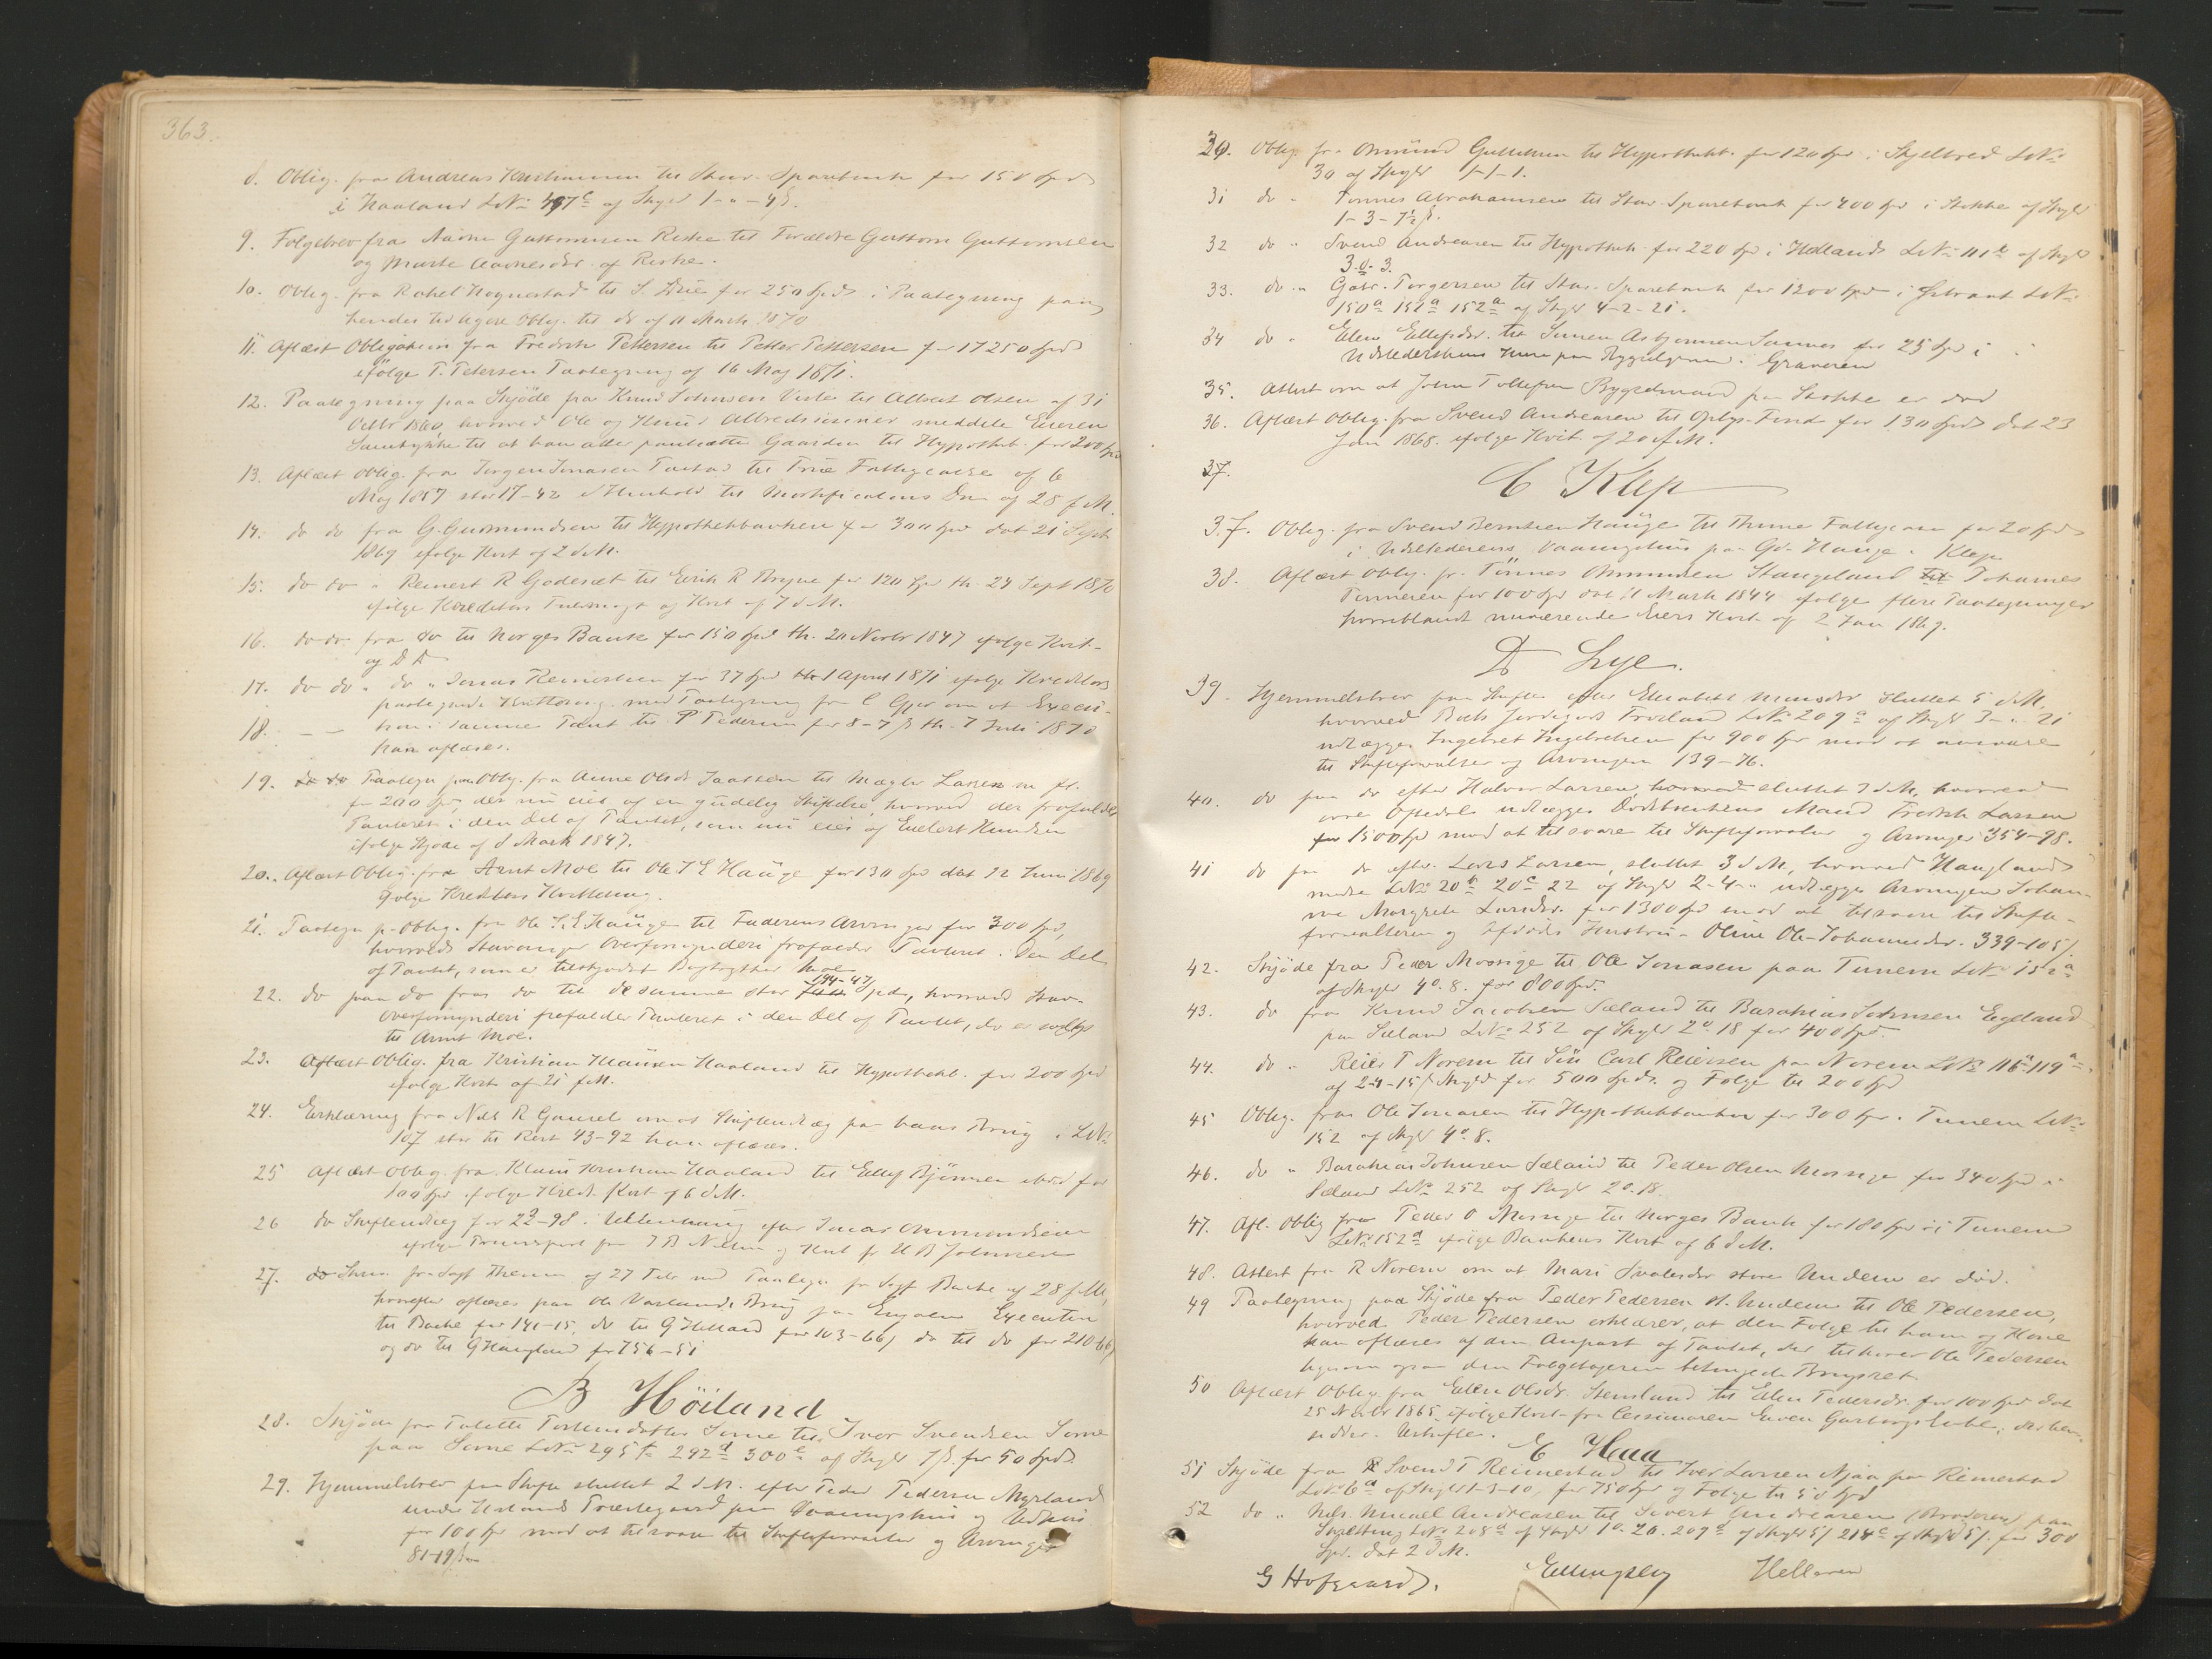 363.
8. Oblig. fra Andreas Kristiansen til Stav. Sparebank for 150 Spd
i Haaland LNo 497c af Skyld 1-"-4β.
9. Folgebrev fra Aadne Guttormsen Riske til Forældre Guttorm Guttormsen
og Marte Aadnesdr. af Riske.
10. Oblig. fra Rakel Hognestad til S. for 250 Spd i Paategning paa
hendes tidligere Oblig. til ds af 11 Marts 1870
11. Aflæst Obligation fra Fredrik Pettersen til Petter Pettersen for 17250 Spd
ifølge T. Petersen Paategning af 16 Maj 1871.
12. Paategning paa Skjöde fra Knud Johnsen Viste til Albert Olsen af 31
Octbr 1860, hvorved Ole og Knud Albredssönner meddele Eieren
Samtykke til at han alle pantsætte Gaarden til Hypothek. for 200 Spd
13. Aflæst Oblig. fra Jorgen Jonasen Tastad til Time Fattigcasse af 6
Maj 1857 stor 17-42 i Henhold til Mortifications Dom af 28 f.M.
14. do do fra G. Gudmundsen til Hypothekbanken for 300 Spd dat 21 Sept
1869 ifølge Kvit af 2 d.M.
15. do do " Reinert R Godeset til Eerik R Bryne for 120 Spd th. 24 Sept 1870
ifølge Kreditors og Kvit af 7 d.M.
16. do do fra do til Norges Bank for 150 Spd th. 20 Novbr 1847 ifølge Kvit.
af D D
17. do do " do " Jonas Reinertsen for 37 Spd th 1 April 1871 ifølge Kreditors
paategnede Kvittering med Paategning fra C om at Execu-
18. - - tion i samme Pant til P Pedersen for 8-7β th. 7 Juli 1870
kan aflæses.
19. Paategn paa Oblig. fra Anne Olsdr Jaatten til Mægler Larsen m fl.
for 200 Spd, der nu eies af en gudelig Stiftelse, hvorved der frafaldes
Panteret i den Del af Pantet, som nu eies af Endert Knudsen
ifölge Skjöde af 8 Mark 1847.
20. Aflæst Oblig. fra Arnt Moe til Ole T E Hauge for 130 Spd dat 22 Juni 1869
ifølge Kreditors Kvittering.
21. Paategn p. Oblig. fra Ole T. E. Hauge til Faderens Arvinger for 300 Spd,
hvorved Stavanger Overformynderi frafalder Panteret i Den Del
af Pantet, som er tilskjodet Bogtrykker Moe
22. do paa do fra do til desamme stor 194-47 pd., hvorved Stav.
Overformynderi frafalder Panteret i den Del af Pantet, der er solgt
til Arnt Moe.
23. Aflæst Oblig. fra Kristian Haaland til Hypothekb. for 200 Spd
ifølge Kvit af 21 f.M.
24. Erklæring fra Nils R Gausel om at Skifteudlæg paa hans Brug i LNo
107 stor til Rest 43-92 kan aflæses.
25 Aflæst Oblig. fra Klaus Kristian Haaland til Ellef Björnsen for
100 Spd ifølge Kred. Kvit af 6 d.M.
26 do Skifteudlæg for 22-98 i efter Jonas Ommundsen
ifølge Transport fra J B og Kvit fr H B Johnsen
27. do Skriv. fra Sagf af 27 Febr med Paategn fr Sagf Bache af 28 f.M,
hvorefter aflæses paa Ole Varlands Brug paa Execution
til Bache for 141-15, do til G Helland for 103-66, do til do for 210-66,
og do til G Haugland for 756-51
B Höiland
28. Skjöde fra Tolette Torkensdatter Somme til Iver Svendsen Somme
paa Somme LNo 295f 292d 300e af Skyld 1β. for 50 Spd.
29. Hjemmelsbrev paa Skifte sluttet 2 d.M. efter Peder Pedersen Myrland
under Hoilands Præstegaard paa Vaaningshus og Udhus
for 100 Spd mod at tilsvare til Skifteforvalter og Arvinger
81-19
30. Oblig. fr. Osmund Gullitsen til Hypothekb. for 120 Spd i Skjelbred LNo
30 af Skyld 1-1-1.
31 do " Tonnes Abrahamsen til Stav. Sparebank for 400 Spd i Stokke af Skyld
1-3-7½β.
32 do " Svend Andreasen til Hypothek. for 220 Spd i Hollands LNo 111b af Skyld
3.0.3.
33. do " Gabr. Torgersen til Stav. Sparebank for 1200 Spd i Östraat LNo
150a 151a 152a af Skyld 4-2-21.
34 do " Elen Ellefsdr. til Simen Asbjornsen Sannes for 25 Spd i
Udstederskens Huse paa i Graveren
35. Attest om at John Tollefsen Bygselmand paa Stokke er dod
36. Aflæst Oblig. fra Svend Andreasen til Oplys. Fond for 130 Spd dat 23
Jan 1868. ifolge Kvit. af 20 f.M.
37. C Klep
37. Oblig. fra Svend Berntsen Hauge til Thime Fattigcasse for 20 Spd
i Udstederens Vaaningshus paa Gd. Hauge i Klep
38. Aflæst Oblig. fr. Tönnes Ommundsen Stangeland til Johannes
Tonnesen for 100 Spd dat 21 Mark 1844 ifolge flere Paategninger
hvoriblandt nuværende Eiers Kvit af 2 Jan 1869.
D Lye.
39. Hjemmelsbrev paa Skifte efter Elisabeth sluttet 5 d.M,
hvorved Boets Jordegods Froiland LNo 209a af Skyld 3-"-21
udlægges Ingebret Ingebretsen for 900 Spd mod at ansvare
til Skifteforvalter og Arvingen 139-76.
40. do paa do efter Halvor Larsen, sluttet 7 d.M., hvorved
ovre Oftedal udlægges Dödsboenkens Mand Fredrik Larsen
for 1500 Spd mod at tilsvare til Skifteforvalter og Arvinger 354-98.
41 do paa do efter Lars Larsen, sluttet 3 d.M., hvorved Haugland
nedre LNo 20b 20c 22 af Skyld 2-4-" udlægges Arvingen Johan-
ne Margrete Larsdr. for 1300 Spd mod at tilsvare til Skifte-
forvalteren og Afdödes Hustru Oline Ole-Johannesdr. 339-105/
42. Skjöde fra Peder Mossige til Ole Jonasen paa Tunem LNo 152a
af Skyld 4.0.8. for 800 Spd.
43. do fra Knud Jacobsen Sæland til Barakias Johnsen Eigeland
paa Sæland LNo 252 af Skyld 2.0.18 for 400 Spd.
44. do " Reier T Norem til Sön Carl Reiersen paa Norem LNo 116a 119a
af 2-4-15β Skyld for 500 Spd. og Folge til 200 Spd
45 Oblig. fra Ole Jonasen til Hypothekbanken for 300 Spd. i Tunem LNo
152 af Skyld 4.0.8.
46. do " Barakias Johnsen Sæland til Peder Olsen Mossige for 340 Spd i
Sæland LNo 252 af Skyld 2.0.18.
47. Afl. Oblig fra Peder O Mossige til Norges Bank for 180 Spd i Tunem
LNo 152a ifölge Bankens Kvit af 6 d.M.
48. Attest fra R Norem om at Mari store Undem er död.
49 Paategning paa Skjöde fra Peder Pedersen st. Undem til Ole Pedersen,
hvorved Peder Pedersen erklærer, at den Folge til ham og Kone
kan aflæses af den Anpart af Pantet, der tilhorer Ole Pedersen
ligesom ogsaa den Folgetageren betingede Brugsret.
50 Aflæst Oblig. fra Elen Olsdr. Stensland til Elen Pedersdr. for 100 Spd dat
25 Novbr 1865, ifölge Kvit fra Cessionaren Even Garborgs Enke, der hen-
sidder i Uskiftet.
E Haa
51 Skjöde fra Svend T Reimestad til Iver Larsen Njaa paa Rimestad
LNo 6d af Skyld 1-3-10, for 750 Spd og Folge til 50 Spd
52 do " Nils Mikael Andreasen til Sivert Andreasen (Broderen) paa
LNo 208a af Skyld 1.0.20. 209a af Skyld 5/ 214c af Skyld 5/. for 300
Spd. dat 2 d.M.
G Hofgaard. Ellingsen Hellaren